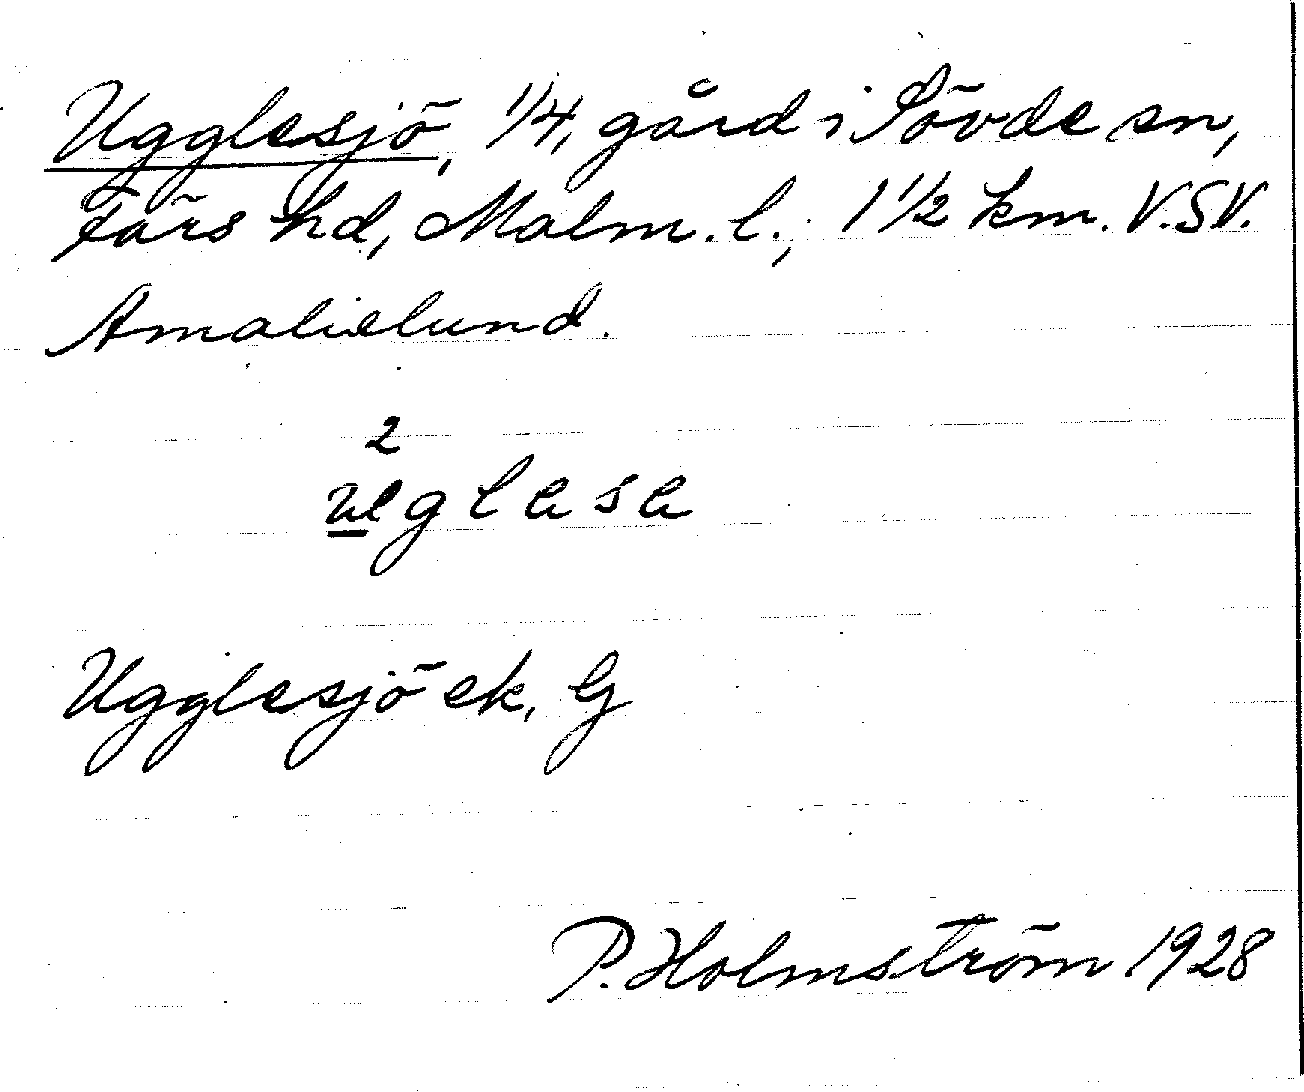 Ugglesjö, 1/4, gård i Sövde sn,
Färs hd, Malm. l., 1 1/2 km. V.SV.
Amalielund.
2
Ugglesjö ek, G
P. Holmström 1928